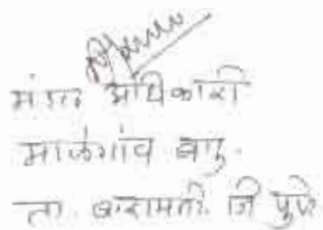 मंडल अधिकारी
माळेगांव बु.
ता. बारामती. जि पुणे